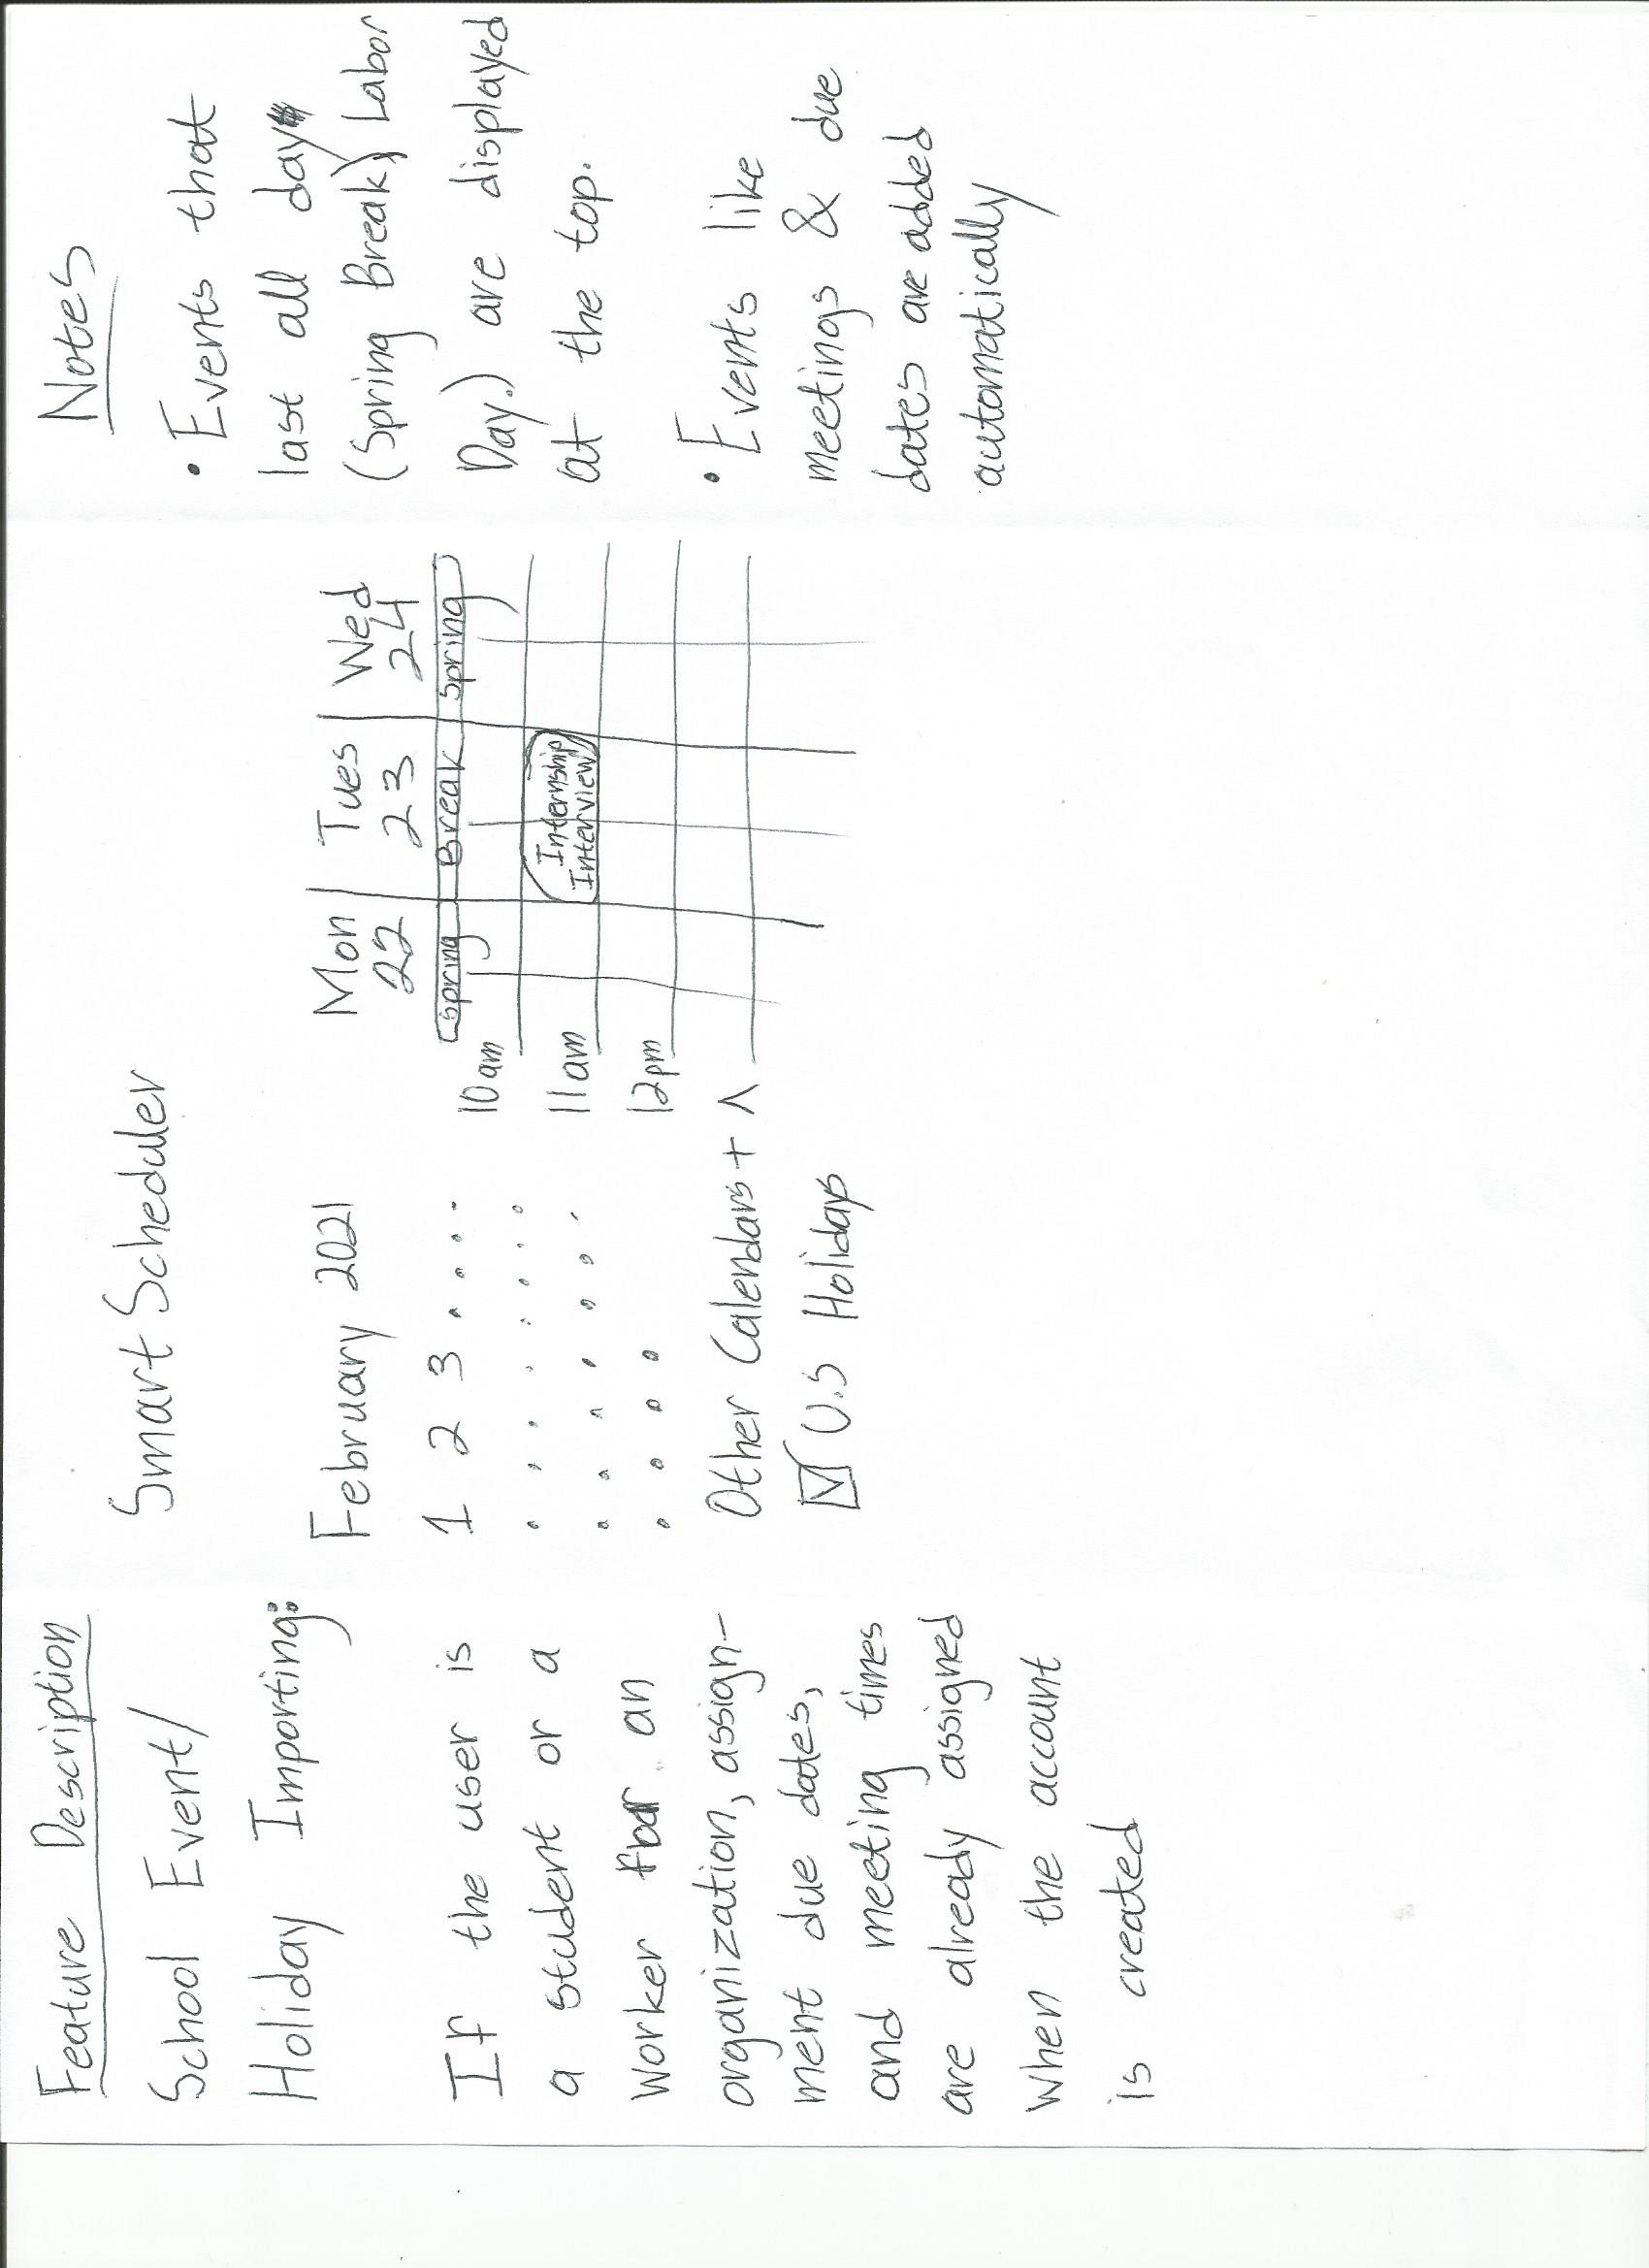 Feature Description
School Event/
Holiday Importing:
If the user is
a student or a
worker for an
organization, assign-
ment due dates,
and meeting times
are already assigned
when the account
is created
Smart Scheduler
February 2021
1 2 3
Other Calendars + ^
U.S Holidays
Mon Tues Wed
22 23 24
Spring Break Spring
10am
11am
Internship
Interview
12pm
Notes
• Events that
last all day
(Spring Break, Labor
Day.) are displayed
at the top.
• Events like
meetings & due
dates are added
automatically